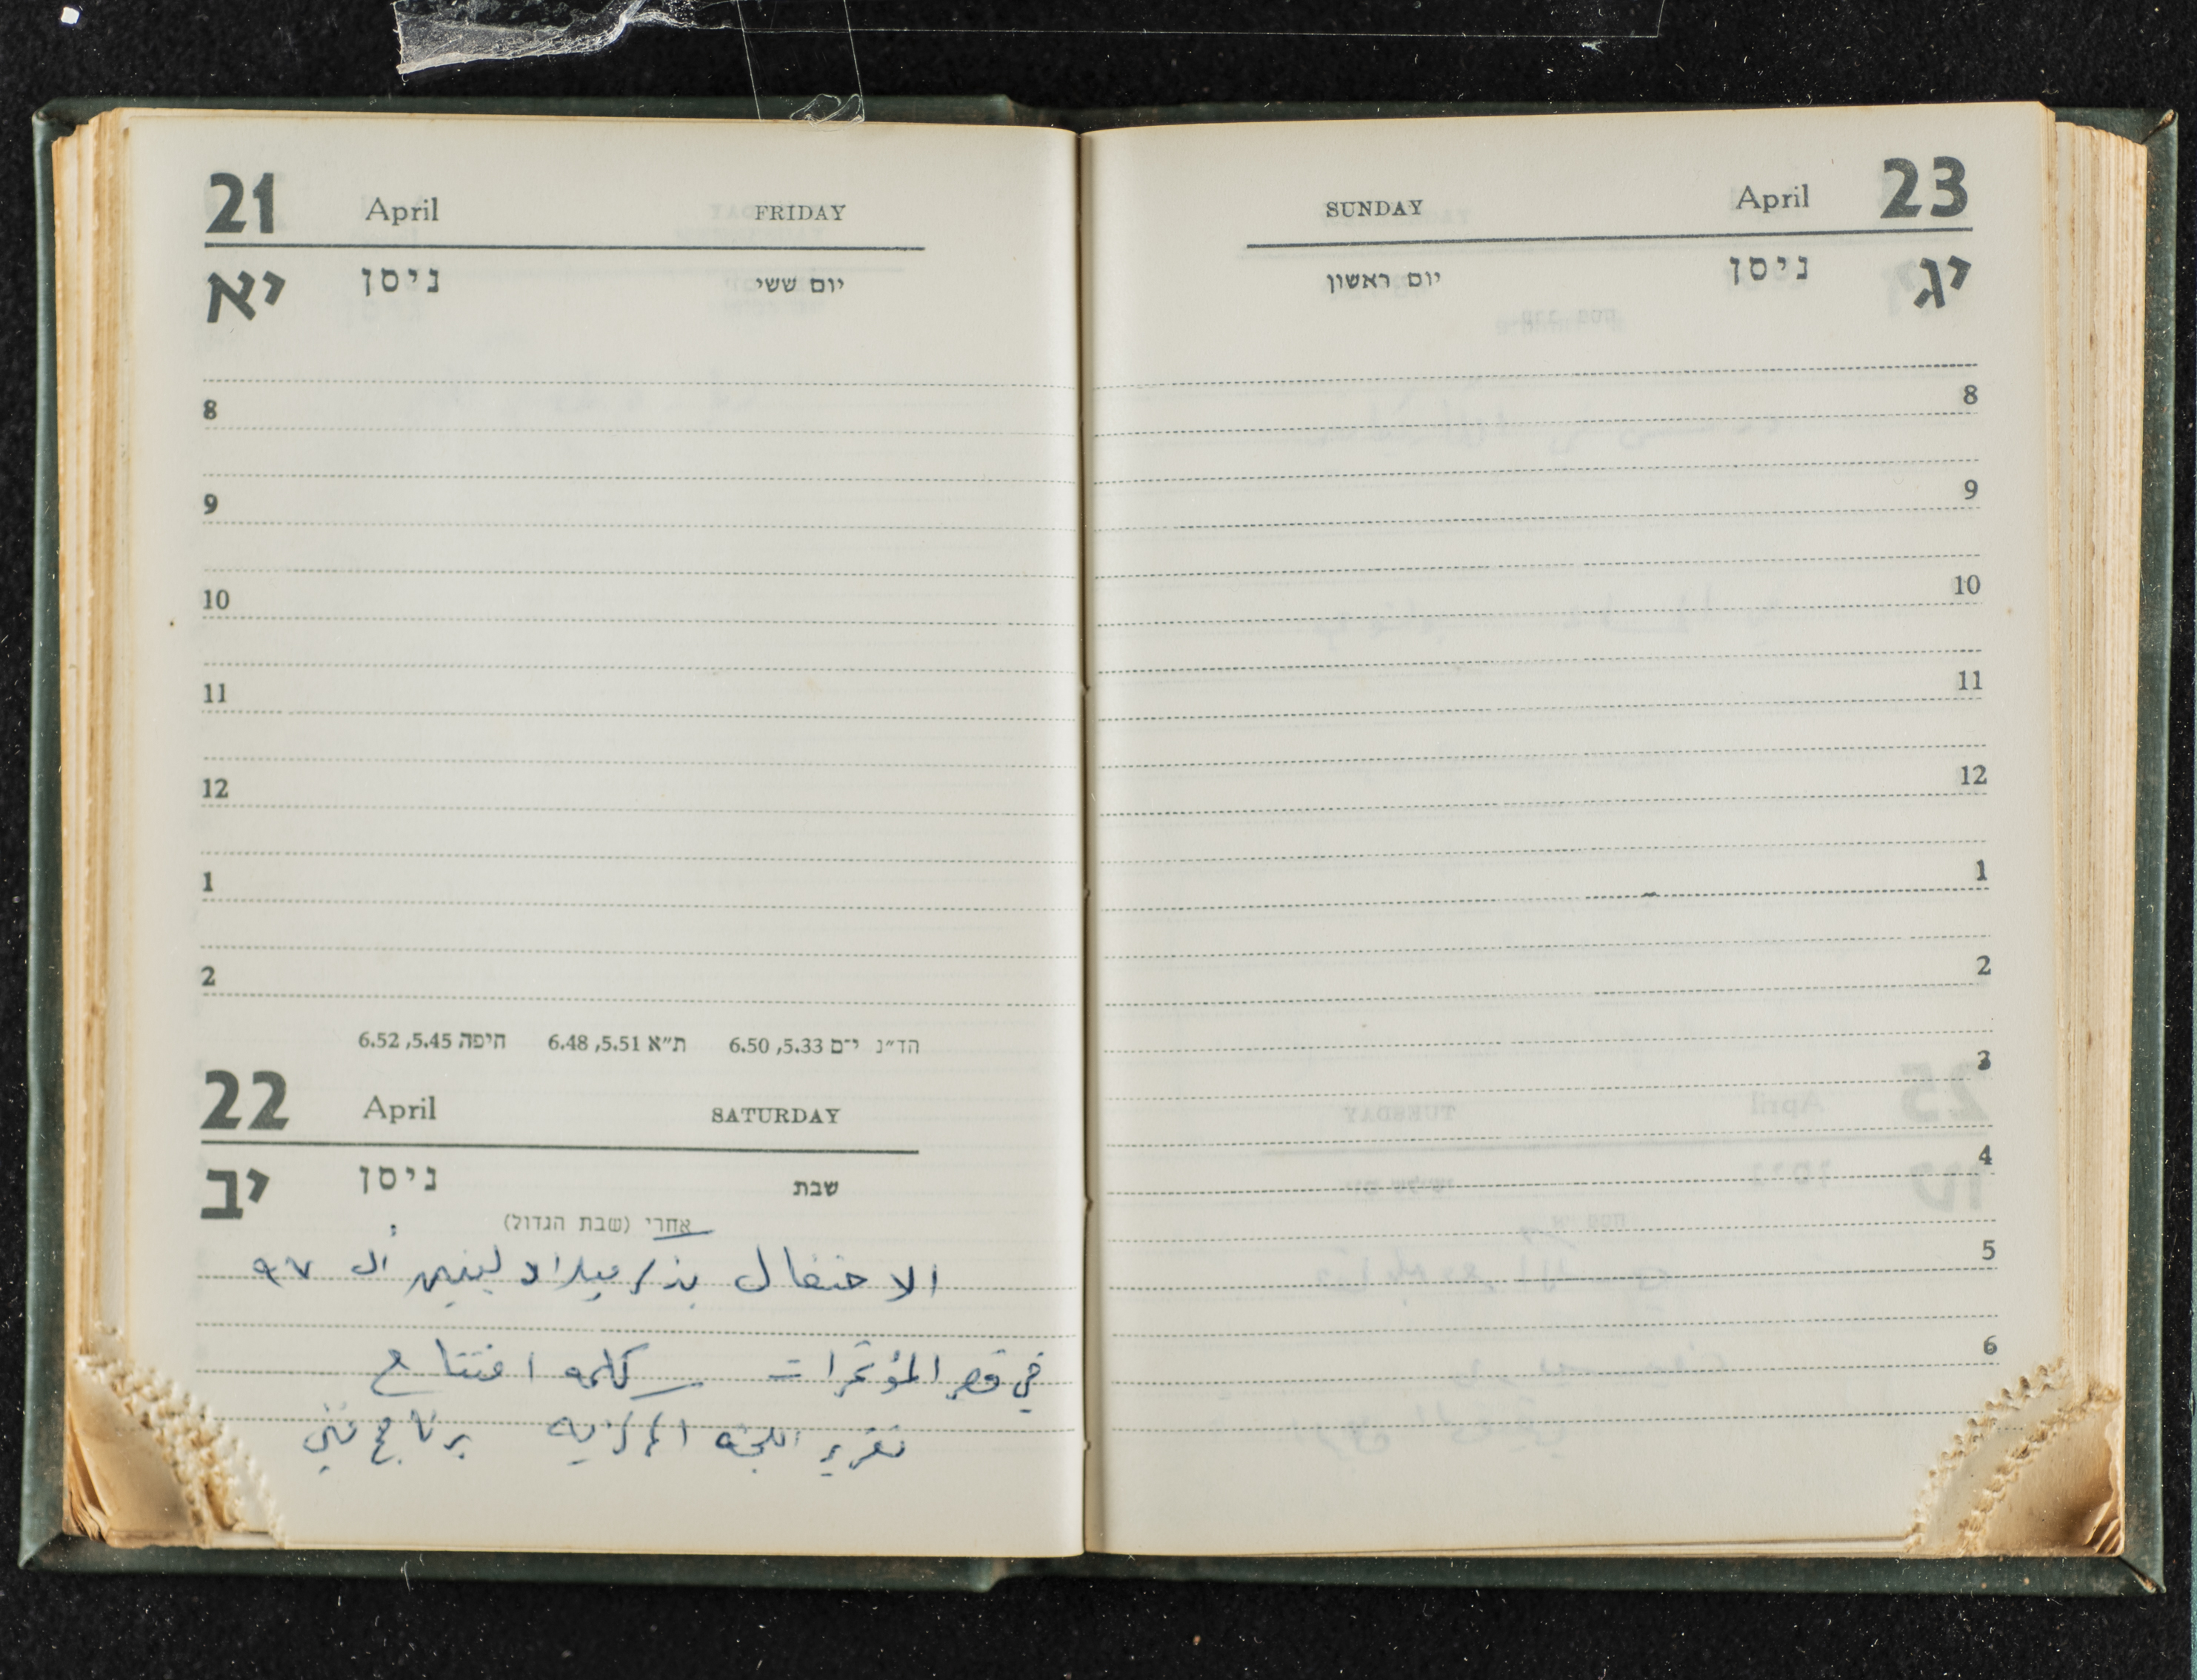 21 April FRIDAY
יא ניסן יום ששי
8
9
10
11
12
1
2
הד״נ י־ם 5.33, 6.50 ת״א 5.51, 6.48 חיפה 5.45, 6.52
22 April SATURDAY
יב ניסן שבת
אחרי (שבת הגדול)
الاحتفال بذكرى ميلاد لينين ال ٩٧
في قصر المؤتمرات - كلمه افتتاح
تقرير اللجنه المركزيه برنامج فني
SUNDAY April 23
יום ראשון ניסן יג
8
9
10
11
12
1
2
3
4
5
6